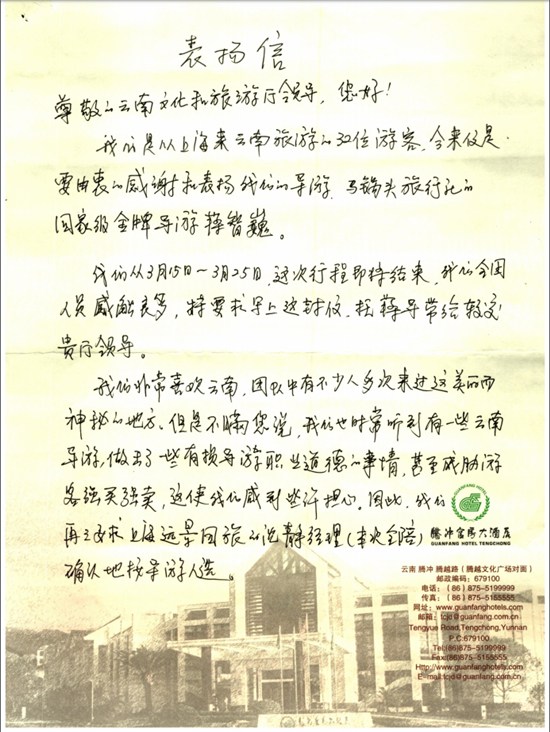 表扬信
尊敬的云南文化和旅游厅领导，您好！
我们是从上海来云南旅游的32位游客，今来信是
要由衷的感谢和表扬我们的导游，马锅头旅行社的
国家级金牌导游蒋智巍。
我们从3月15日～3月25日，这次行程即将结束，我们全团
人员感触良多，特要写上这封信，托蒋导带给转交
贵厅领导。
我们非常喜欢云南，团队中有不少人多次来过这美丽而
神秘的地方、但是不瞒您说，我们也时常听到有一些云南
导游，做出了一些有损导游职业道德的事情，甚至威胁游
客强买强卖，这使我们感到些许担心。因此，我们
再三要求上海远景国旅的沈静经理（本次全陪）
确认地接导游人选。
GUANFANG HOTEL
腾冲官房大酒店
GUANFANG HOTEL TENGCHONG
云南 腾冲 腾越路（腾越文化广场对面）
邮政编码：679100
电话：（86）875-5199999
传真：（86）875-5155555
网址：www.guanfanghotels.com
邮箱：tcjd@guanfang.com.cn
Tengyue Road,Tengchong,Yunnan
P.C:679100
Tel:(86)875-5199999
Fax:(86)875-5155555
Http://www.guanfanghotels.com
E-mail:tcjd@guanfang.com.cn